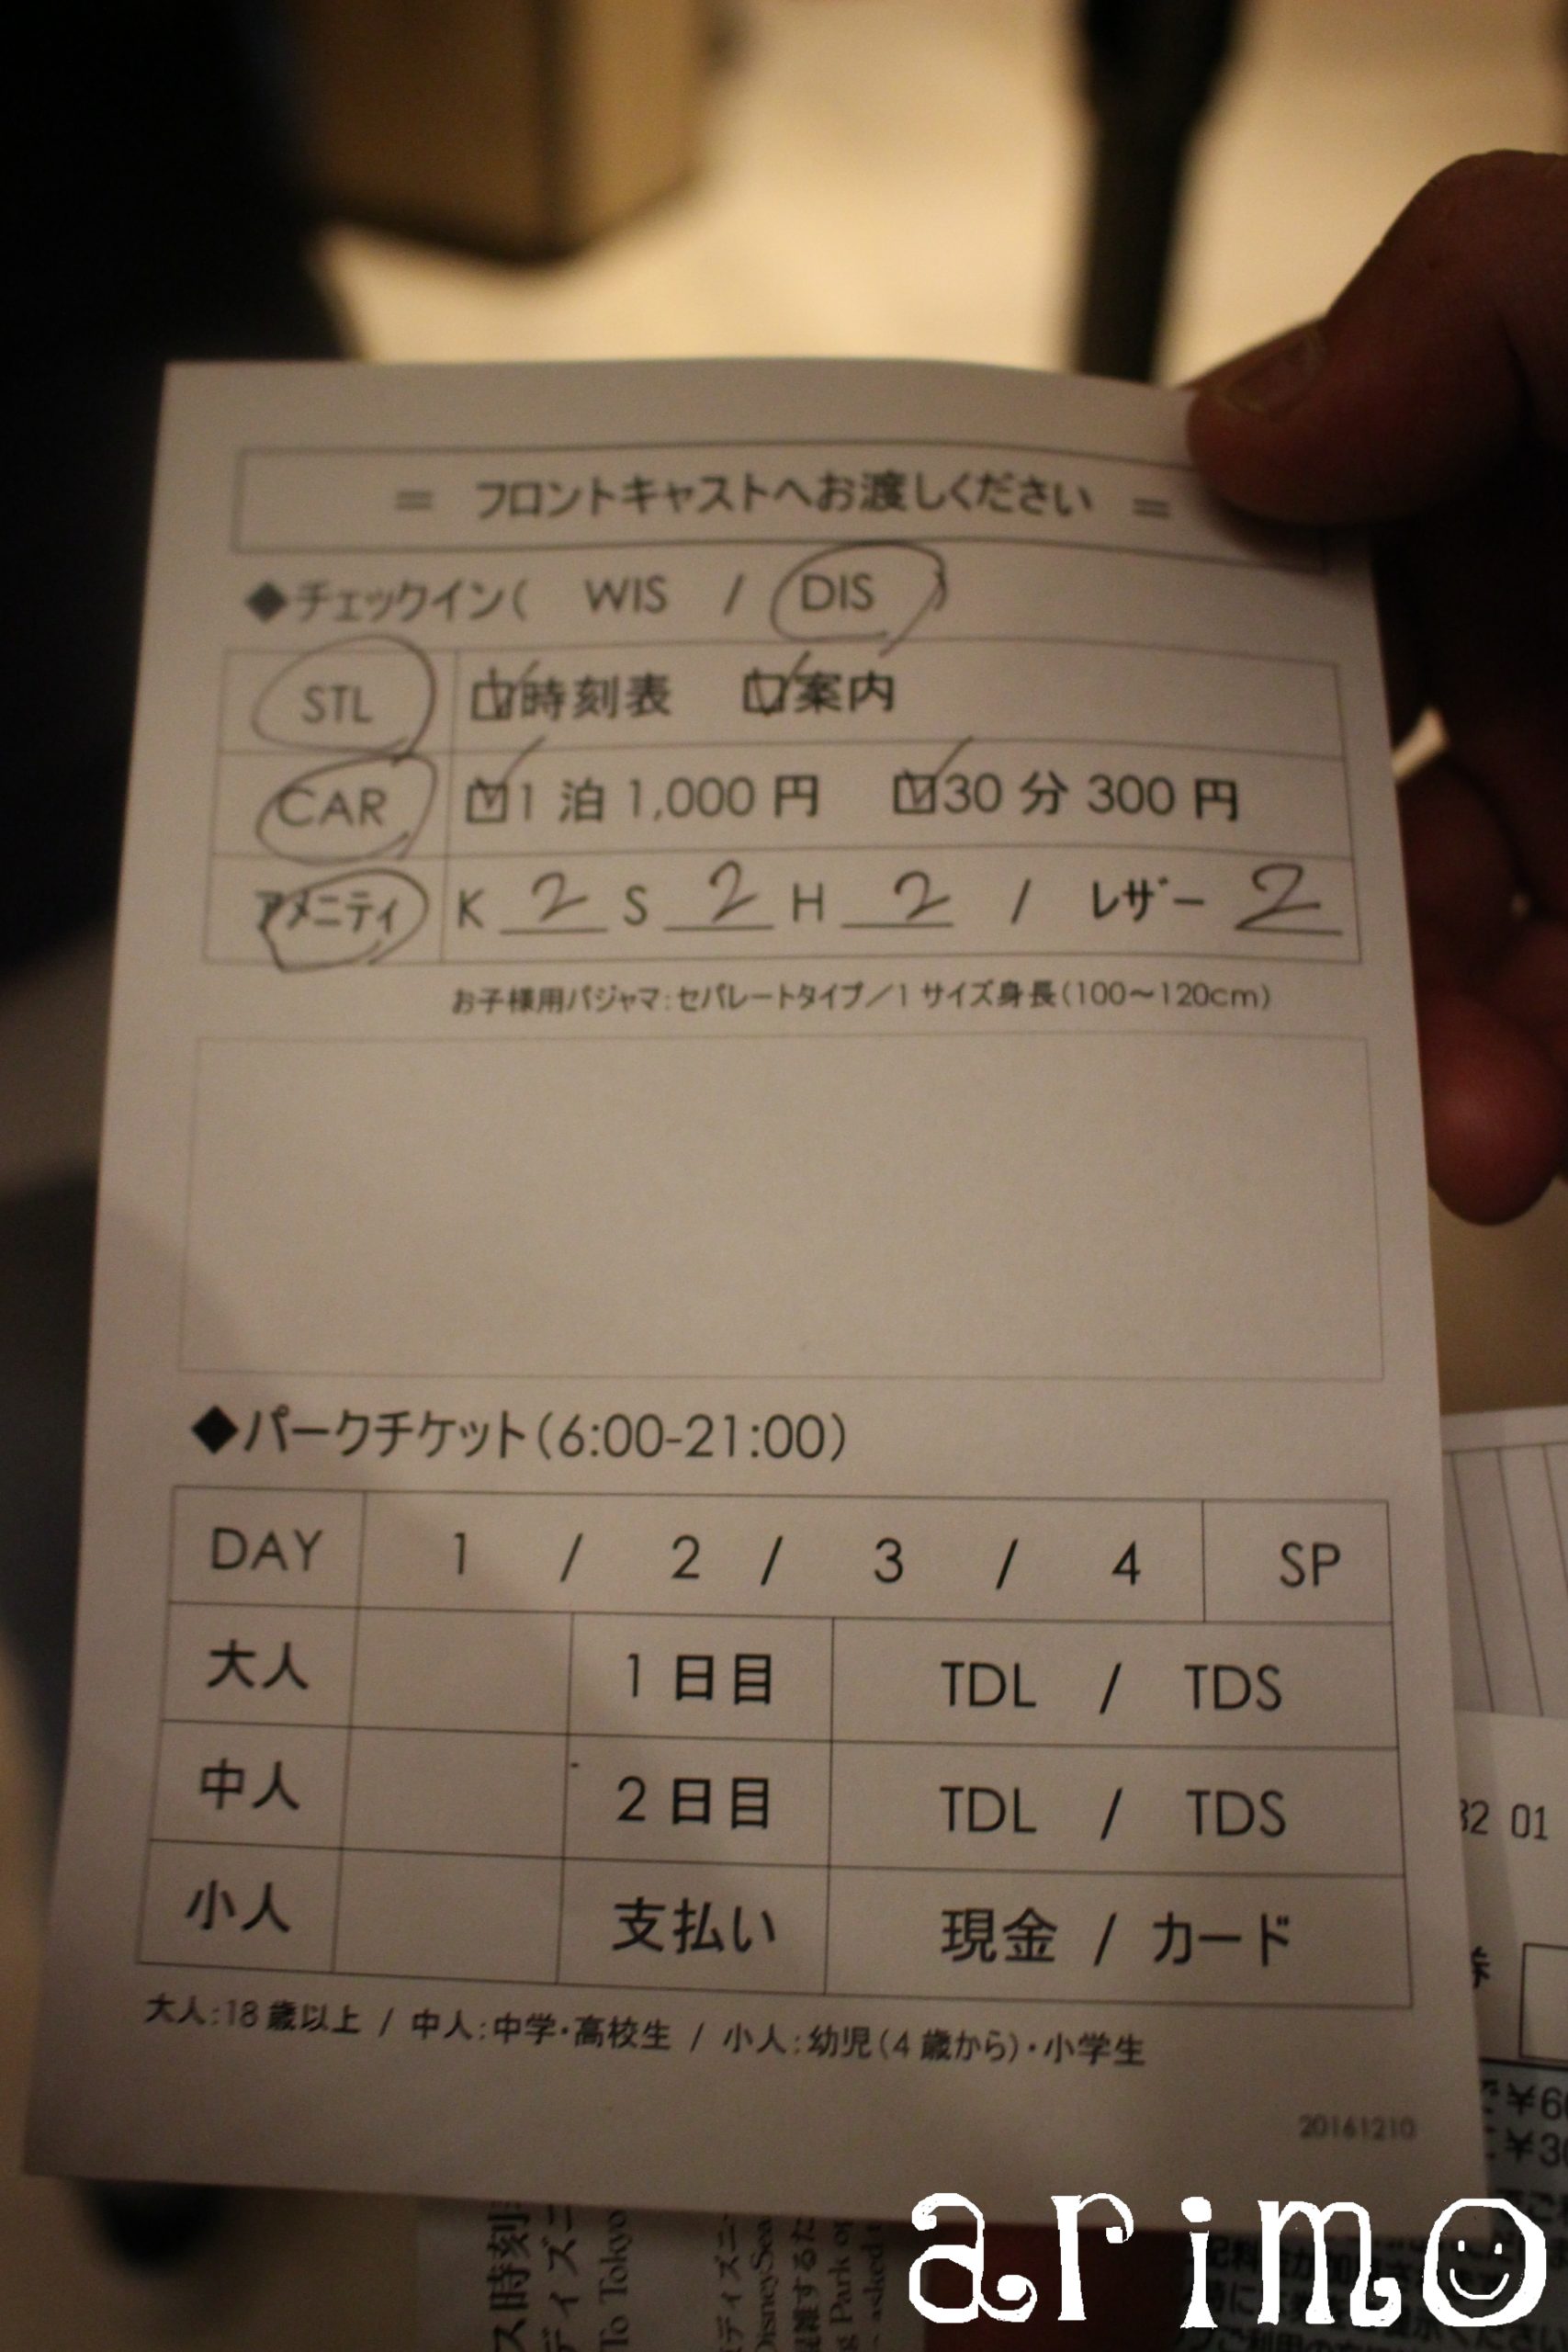 = フロントキャストへお渡しください =
◆チェックイン( WIS / DIS )
STL ☑時刻表 ☑案内
CAR ☑1泊1,000円 ☑30分300円
アメニティ K 2 S 2 H 2 / レザー 2
お子様用パジャマ:セパレートタイプ/1サイズ身長(100~120cm)
◆パークチケット(6:00-21:00)
DAY 1 / 2 / 3 / 4 SP
大人 1日目 TDL / TDS
中人 2日目 TDL / TDS
小人 支払い 現金 / カード
大人:18歳以上 / 中人:中学・高校生 / 小人:幼児(4歳から)・小学生
20161210
32 01
ス時刻
ディズニ
To Tokyo
ディズニ
DisneySea
混雑するた
Park op
asked
arimo